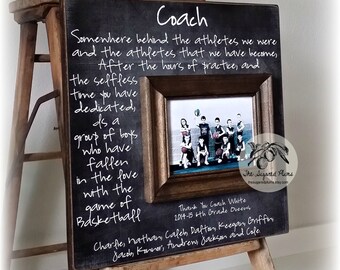 Coach
Somewhere behind the athletes we were
and the athletes, that we have become,
After the hours of practice, and
the selfless
time you have
dedicated,
Is a
group of boys
who have
fallen
in the love
with the
game of
Basketball
Thank You Coach White
2014-15 6th Grade Queens
Charlie, Nathan, Caleb, Dalton, Keegan, Griffin
Jacob, Konnor, Andrew, Jackson and Cole